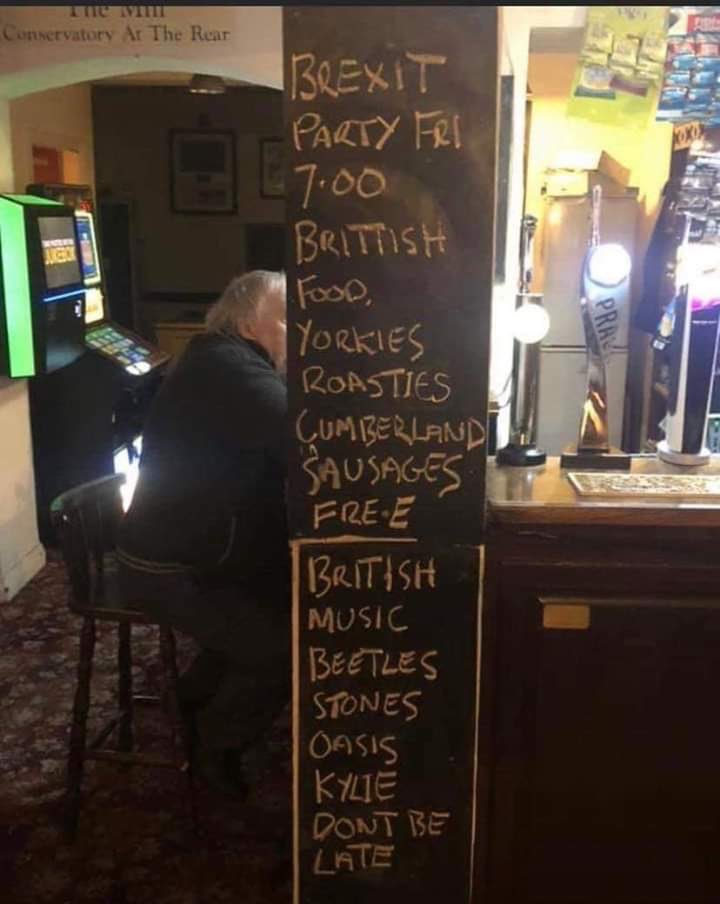 The Mill
Conservatory At The Rear
BREXIT
PARTY FRI
7.00
BRITTISH
FOOD,
YORKIES
ROASTIES
CUMBERLAND
SAUSAGES
FRE·E
BRITISH
MUSIC
BEETLES
STONES
OASIS
KYLIE
DONT BE
LATE
JUKEBOX